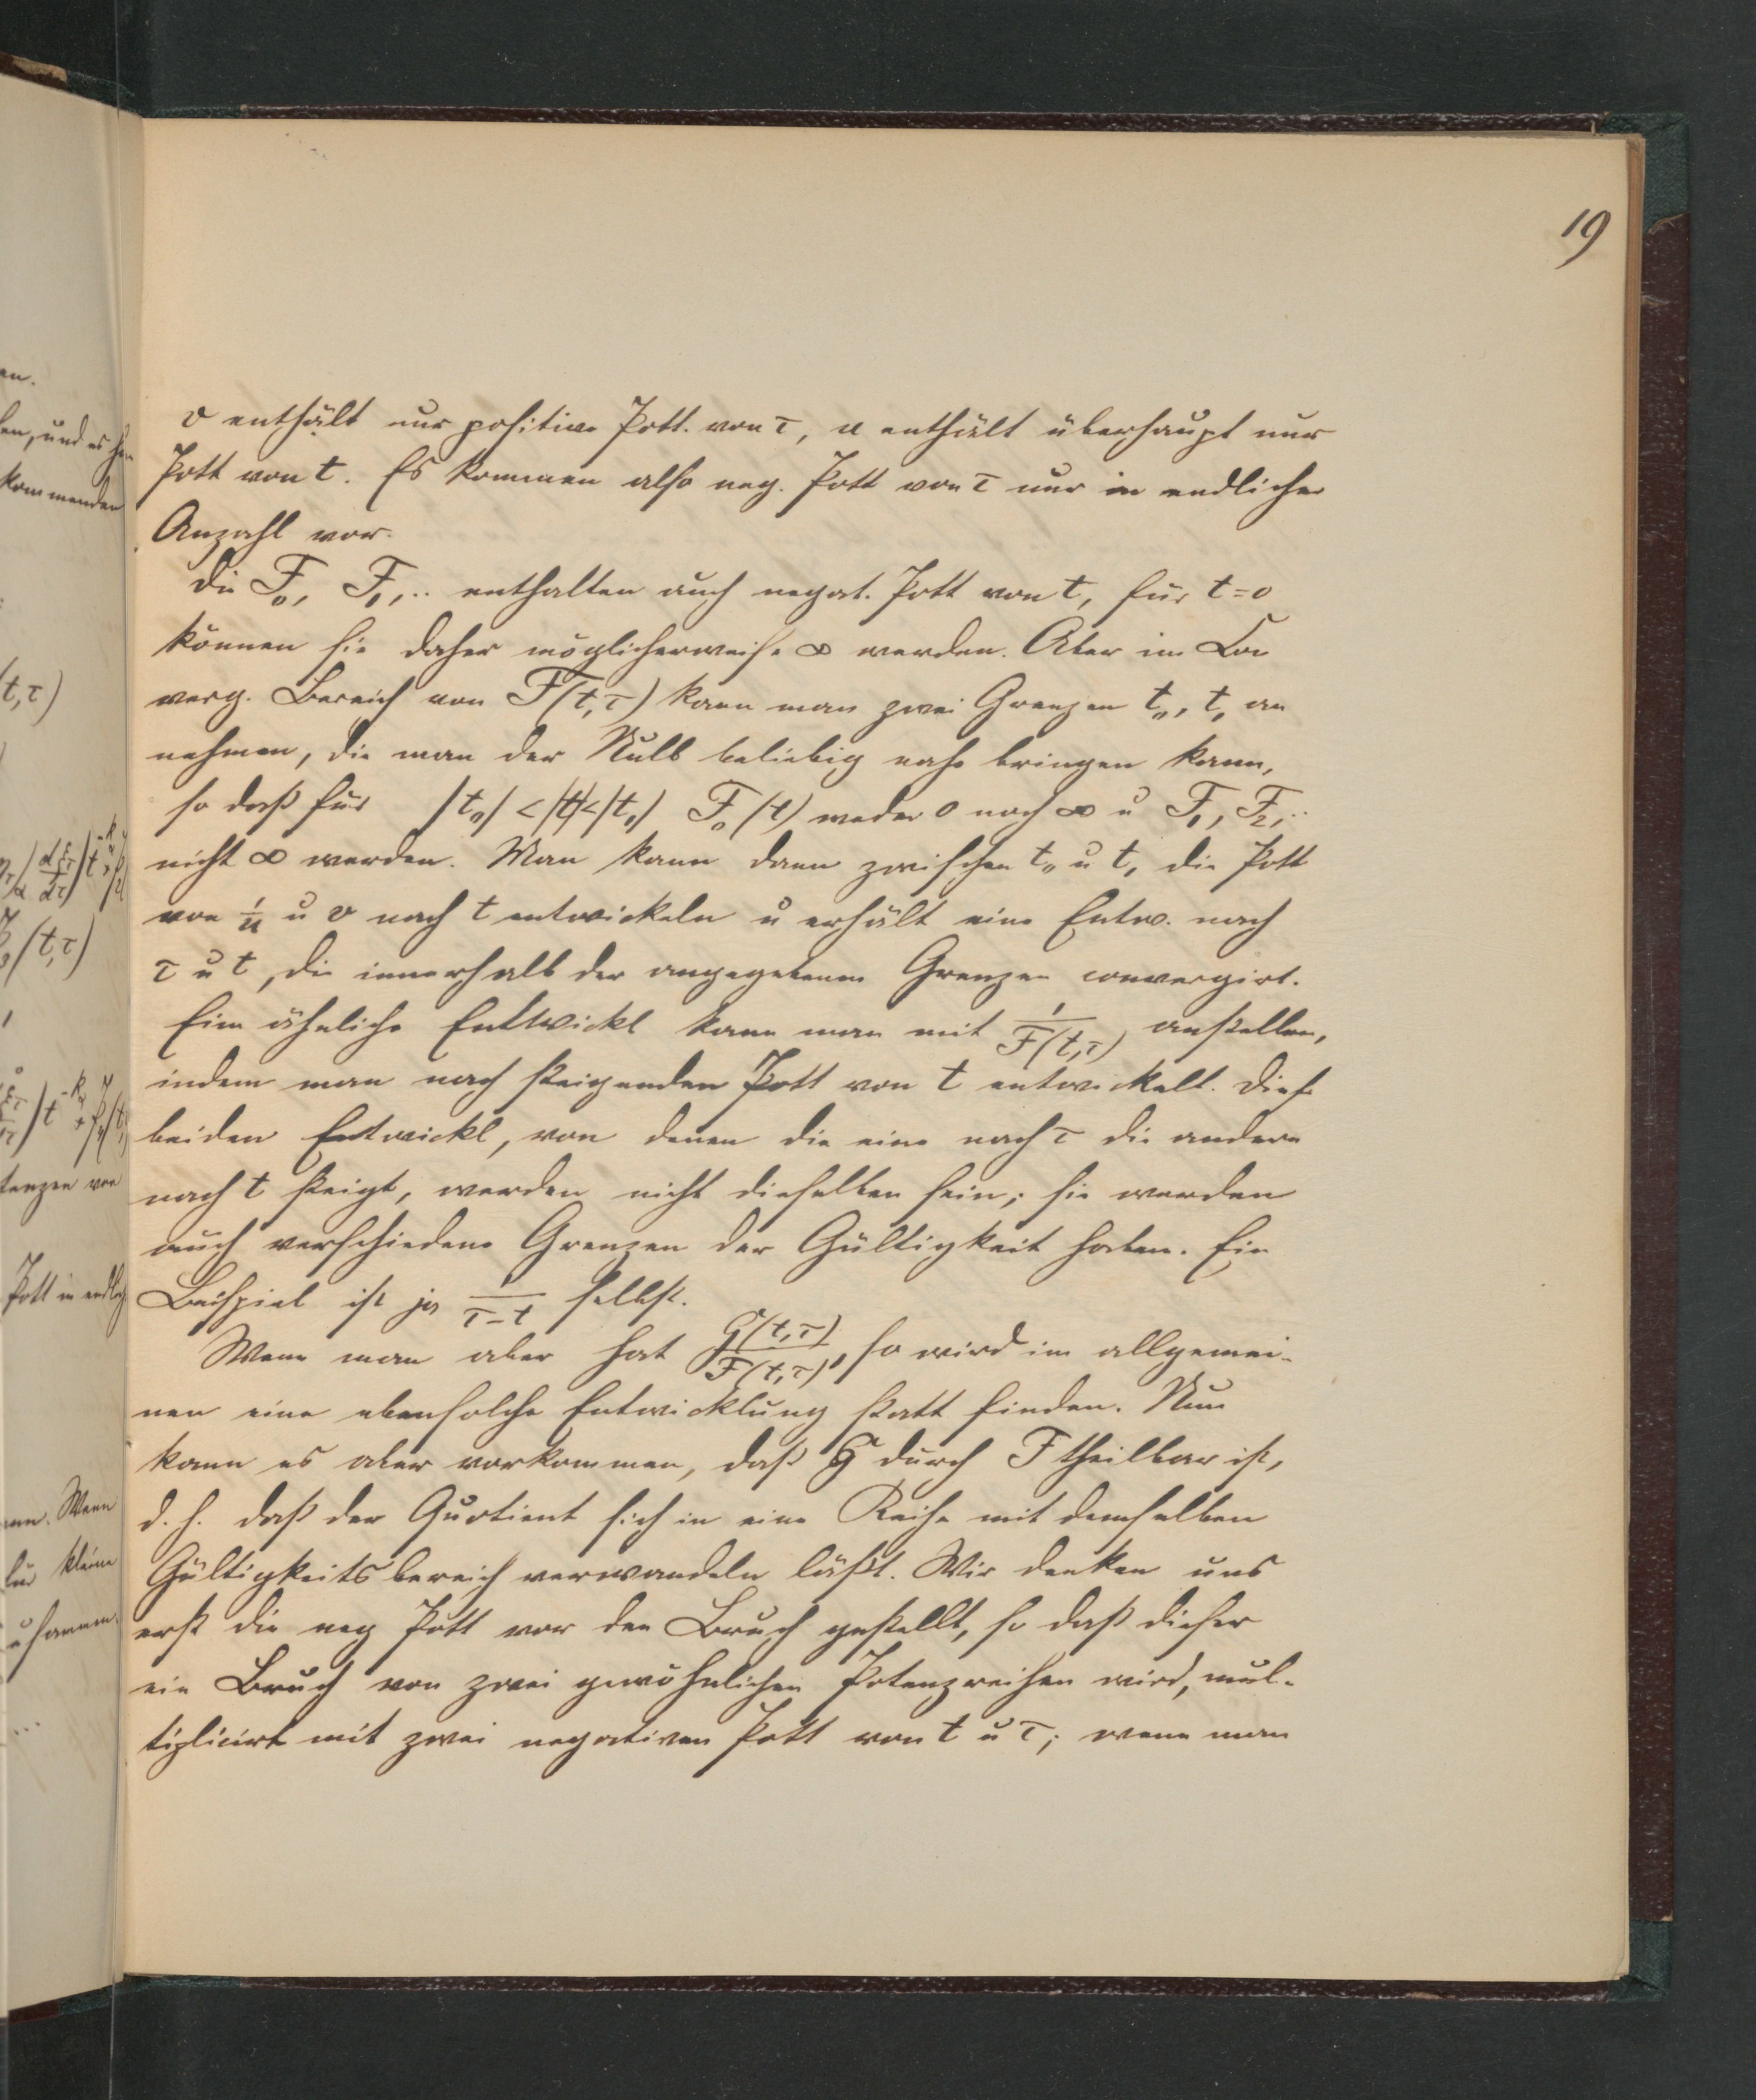 19
v enthält nur positive Pott. von τ, u enthält überhaupt nur
Pott von t. Es kommen also neg. Pott von τ nur in endlicher
Anzahl vor.
Die F₀, F₁,.. enthalten auch negat. Pott von t, für t=0
können sie daher möglicherweise ∞ werden. Aber im Con
verg. Bereich von F(t,τ) kann man zwei Grenzen t₀, t₁ an
nehmen, die man der Null beliebig nahe bringen kann,
so daß für |t₀| < |t| < |t₁| F₀(t) weder 0 noch ∞ u F₁, F₂,..
nicht ∞ werden. Man kann dann zwischen t₀ u t₁ die Pott
von 1/u u v nach t entwickeln u erhält eine Entw. nach
τ u t, die innerhalb der angegebenen Grenzen convergirt.
Eine ähnliche Entwickl kann man mit 1/F(t,τ) anstellen,
indem man nach steigenden Pott von t entwickelt. Diese
beiden Entwickl, von denen die eine nach τ die andere
nach t steigt, werden nicht dieselben sein; sie werden
auch verschiedene Grenzen der Gültigkeit haben. Ein
Beispiel ist ja 1/(τ-t) selbst.
Wenn man aber hat G(t,τ)/F(t,τ), so wird im allgemei-
nen eine ebensolche Entwicklung statt finden. Nun
kann es aber vorkommen, daß G durch F theilbar ist,
d. h. daß der Quotient sich in eine Reihe mit demselben
Gültigkeitsbereich verwandeln läßt. Wir denken uns
erst die neg Pott vor den Bruch gestellt, so daß dieser
ein Bruch von zwei gewöhnlichen Potenzreihen wird, mul-
tiplicirt mit zwei negativen Pott von t u τ; wenn man